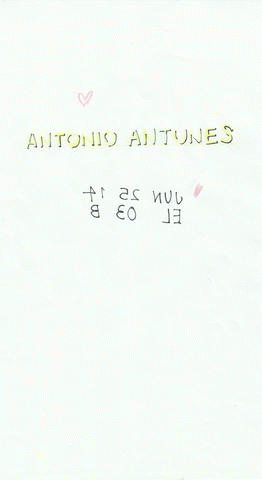 ANTONIO ANTUNES
JUN 25 14
EL 03 B